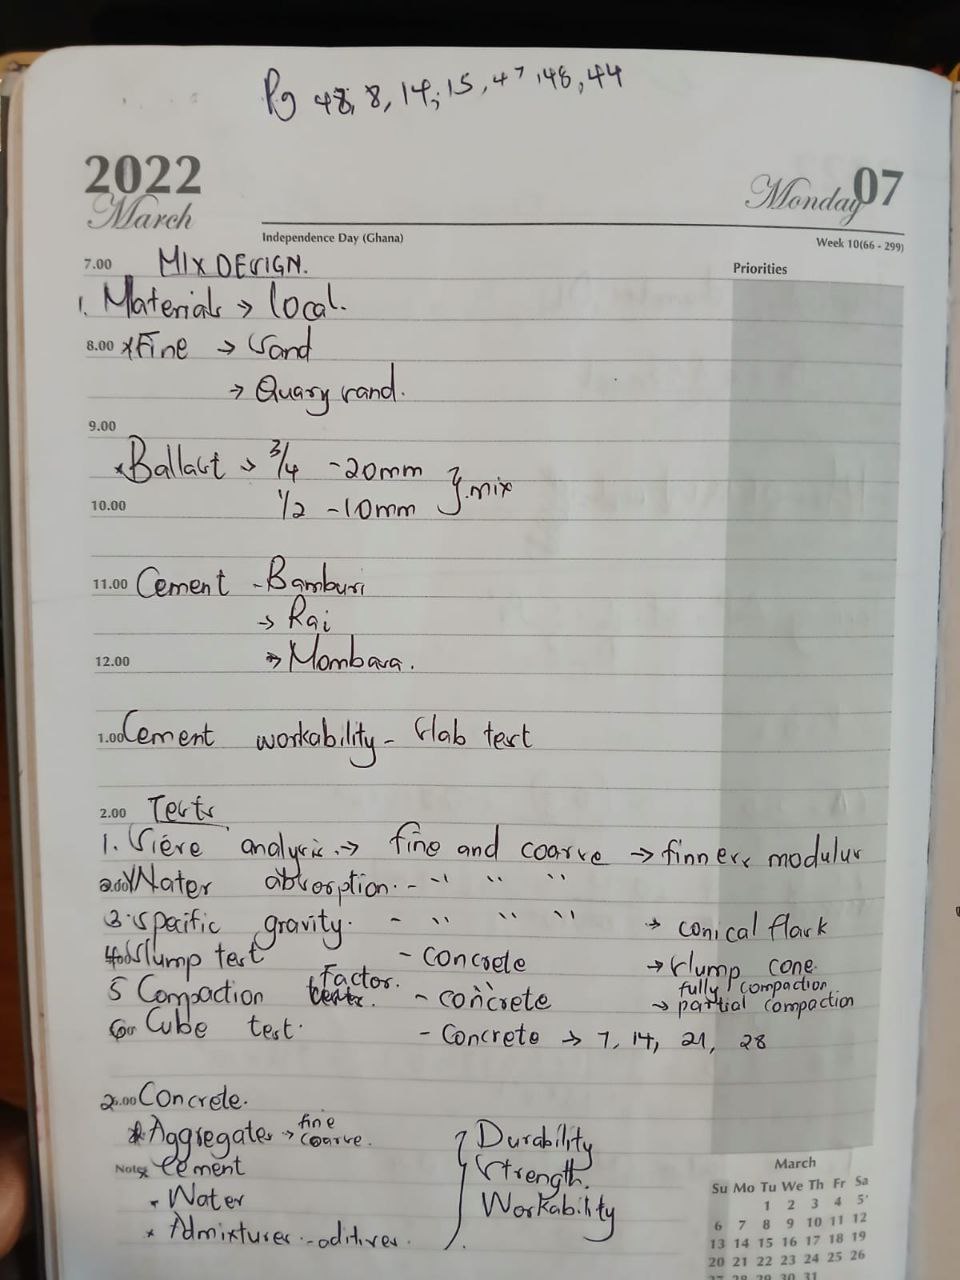 Pg 48, 8, 14, 15, 47, 48, 44
2022
March
Monday 07
Independence Day (Ghana)
Week 10(66 - 299)
7.00 MIX DESIGN.
Priorities
1. Materials → local.
8.00 *Fine → Sand
→ Quary sand.
9.00
*Ballast → 3/4 - 20mm
10.00 1/2 - 10mm } mix
11.00 Cement - Bamburi
→ Rai
12.00 → Mombasa.
1.00 Cement workability - Slab test
2.00 Tests
1. Sieve analysis. → fine and coarse → finness modulus
2. Water absorption. - " " "
3. Specific gravity. - " " " → conical flask
4. Slump test - concrete → slump cone.
5 Compaction Factor. - concrete → fully compaction
partial compaction
6. Cube test. - Concrete → 7, 14, 21, 28
2. Concrete.
* Aggregates → fine
coarse.
Notes * Cement
* Water
* Admixtures - aditives.
} Durability
Strength.
Workability
March
Su Mo Tu We Th Fr Sa
1 2 3 4 5
6 7 8 9 10 11 12
13 14 15 16 17 18 19
20 21 22 23 24 25 26
27 28 29 30 31